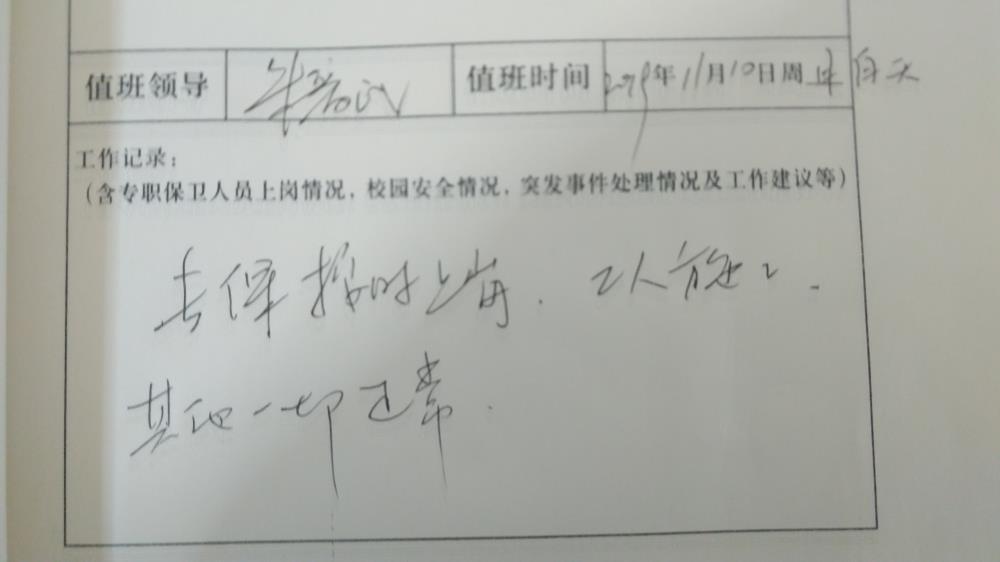 值班领导 朱 值班时间 2019年11月10日周日 白天
工作记录：
（含专职保卫人员上岗情况，校园安全情况，突发事件处理情况及工作建议等）
专保按时上岗．工人施工．
其他一切正常．